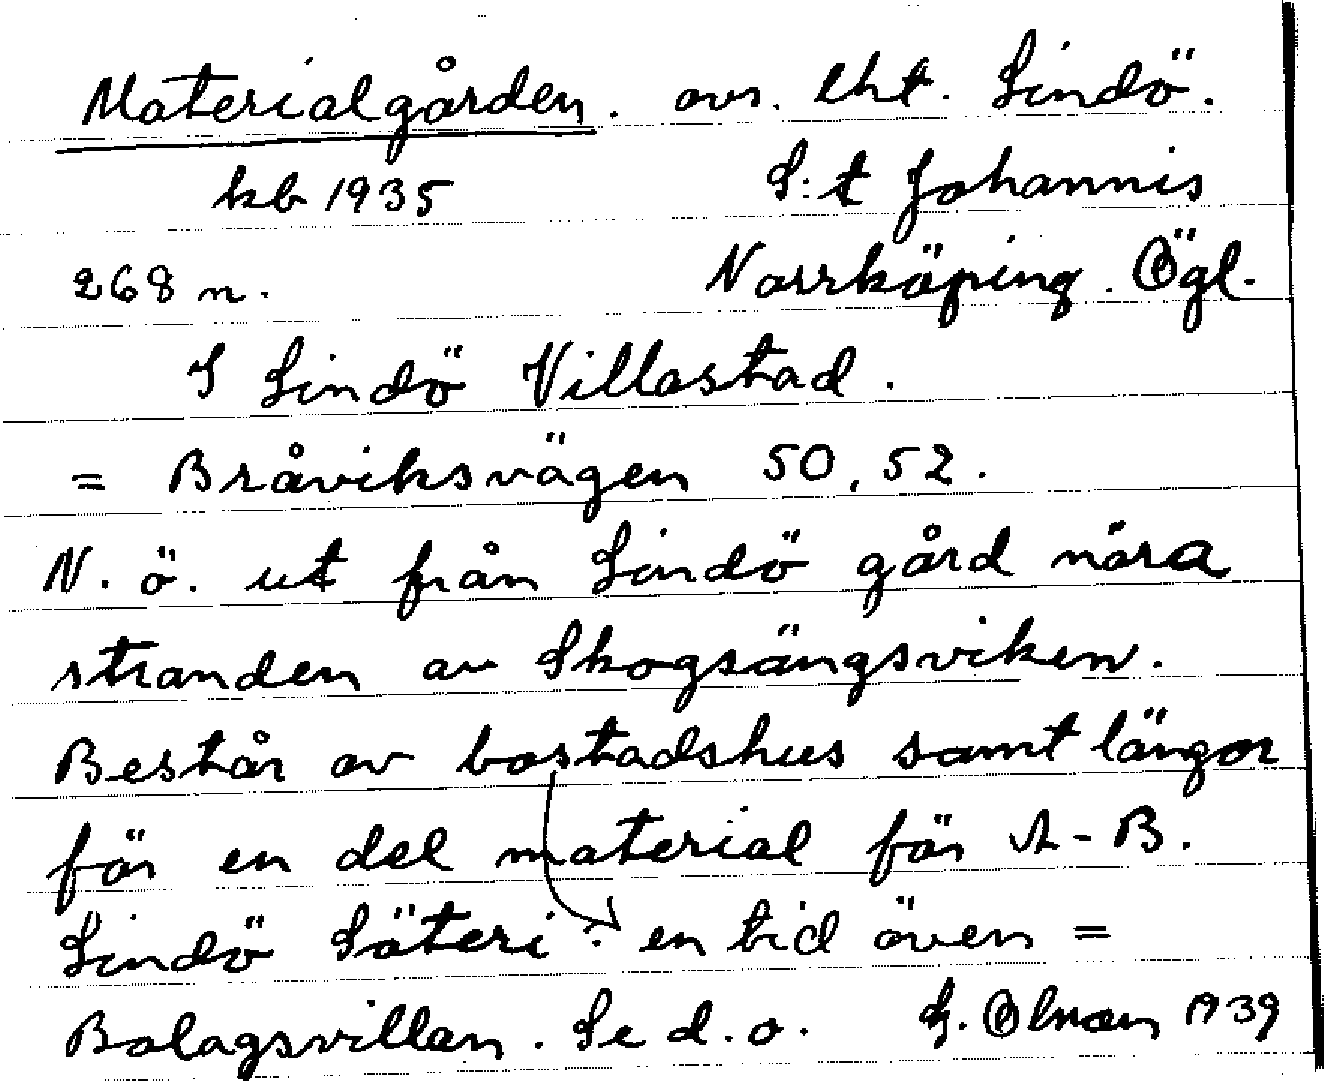 Materialgården. avs. lht. Lindö.
kb 1935 S:t Johannis
268 n. Norrköping. Ögl.
I Lindö Villastad.
= Bråviksvägen 50, 52.
N. ö. ut från Lindö gård nära
stranden av Skogsängsviken.
Består av bostadshus samt längor
för en del material för A-B.
Lindö Säteri: en tid även =
Bolagsvillan. Se d. o. G. Olman 1939